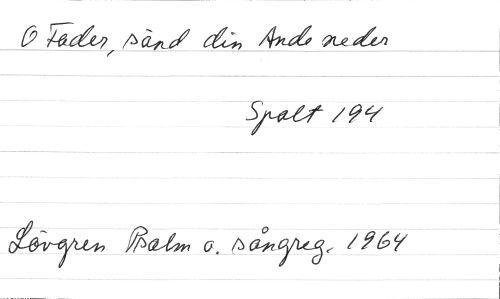 O Fader, sänd din Ande neder
Spalt 194
Lövgren Psalm o. sångreg. 1964